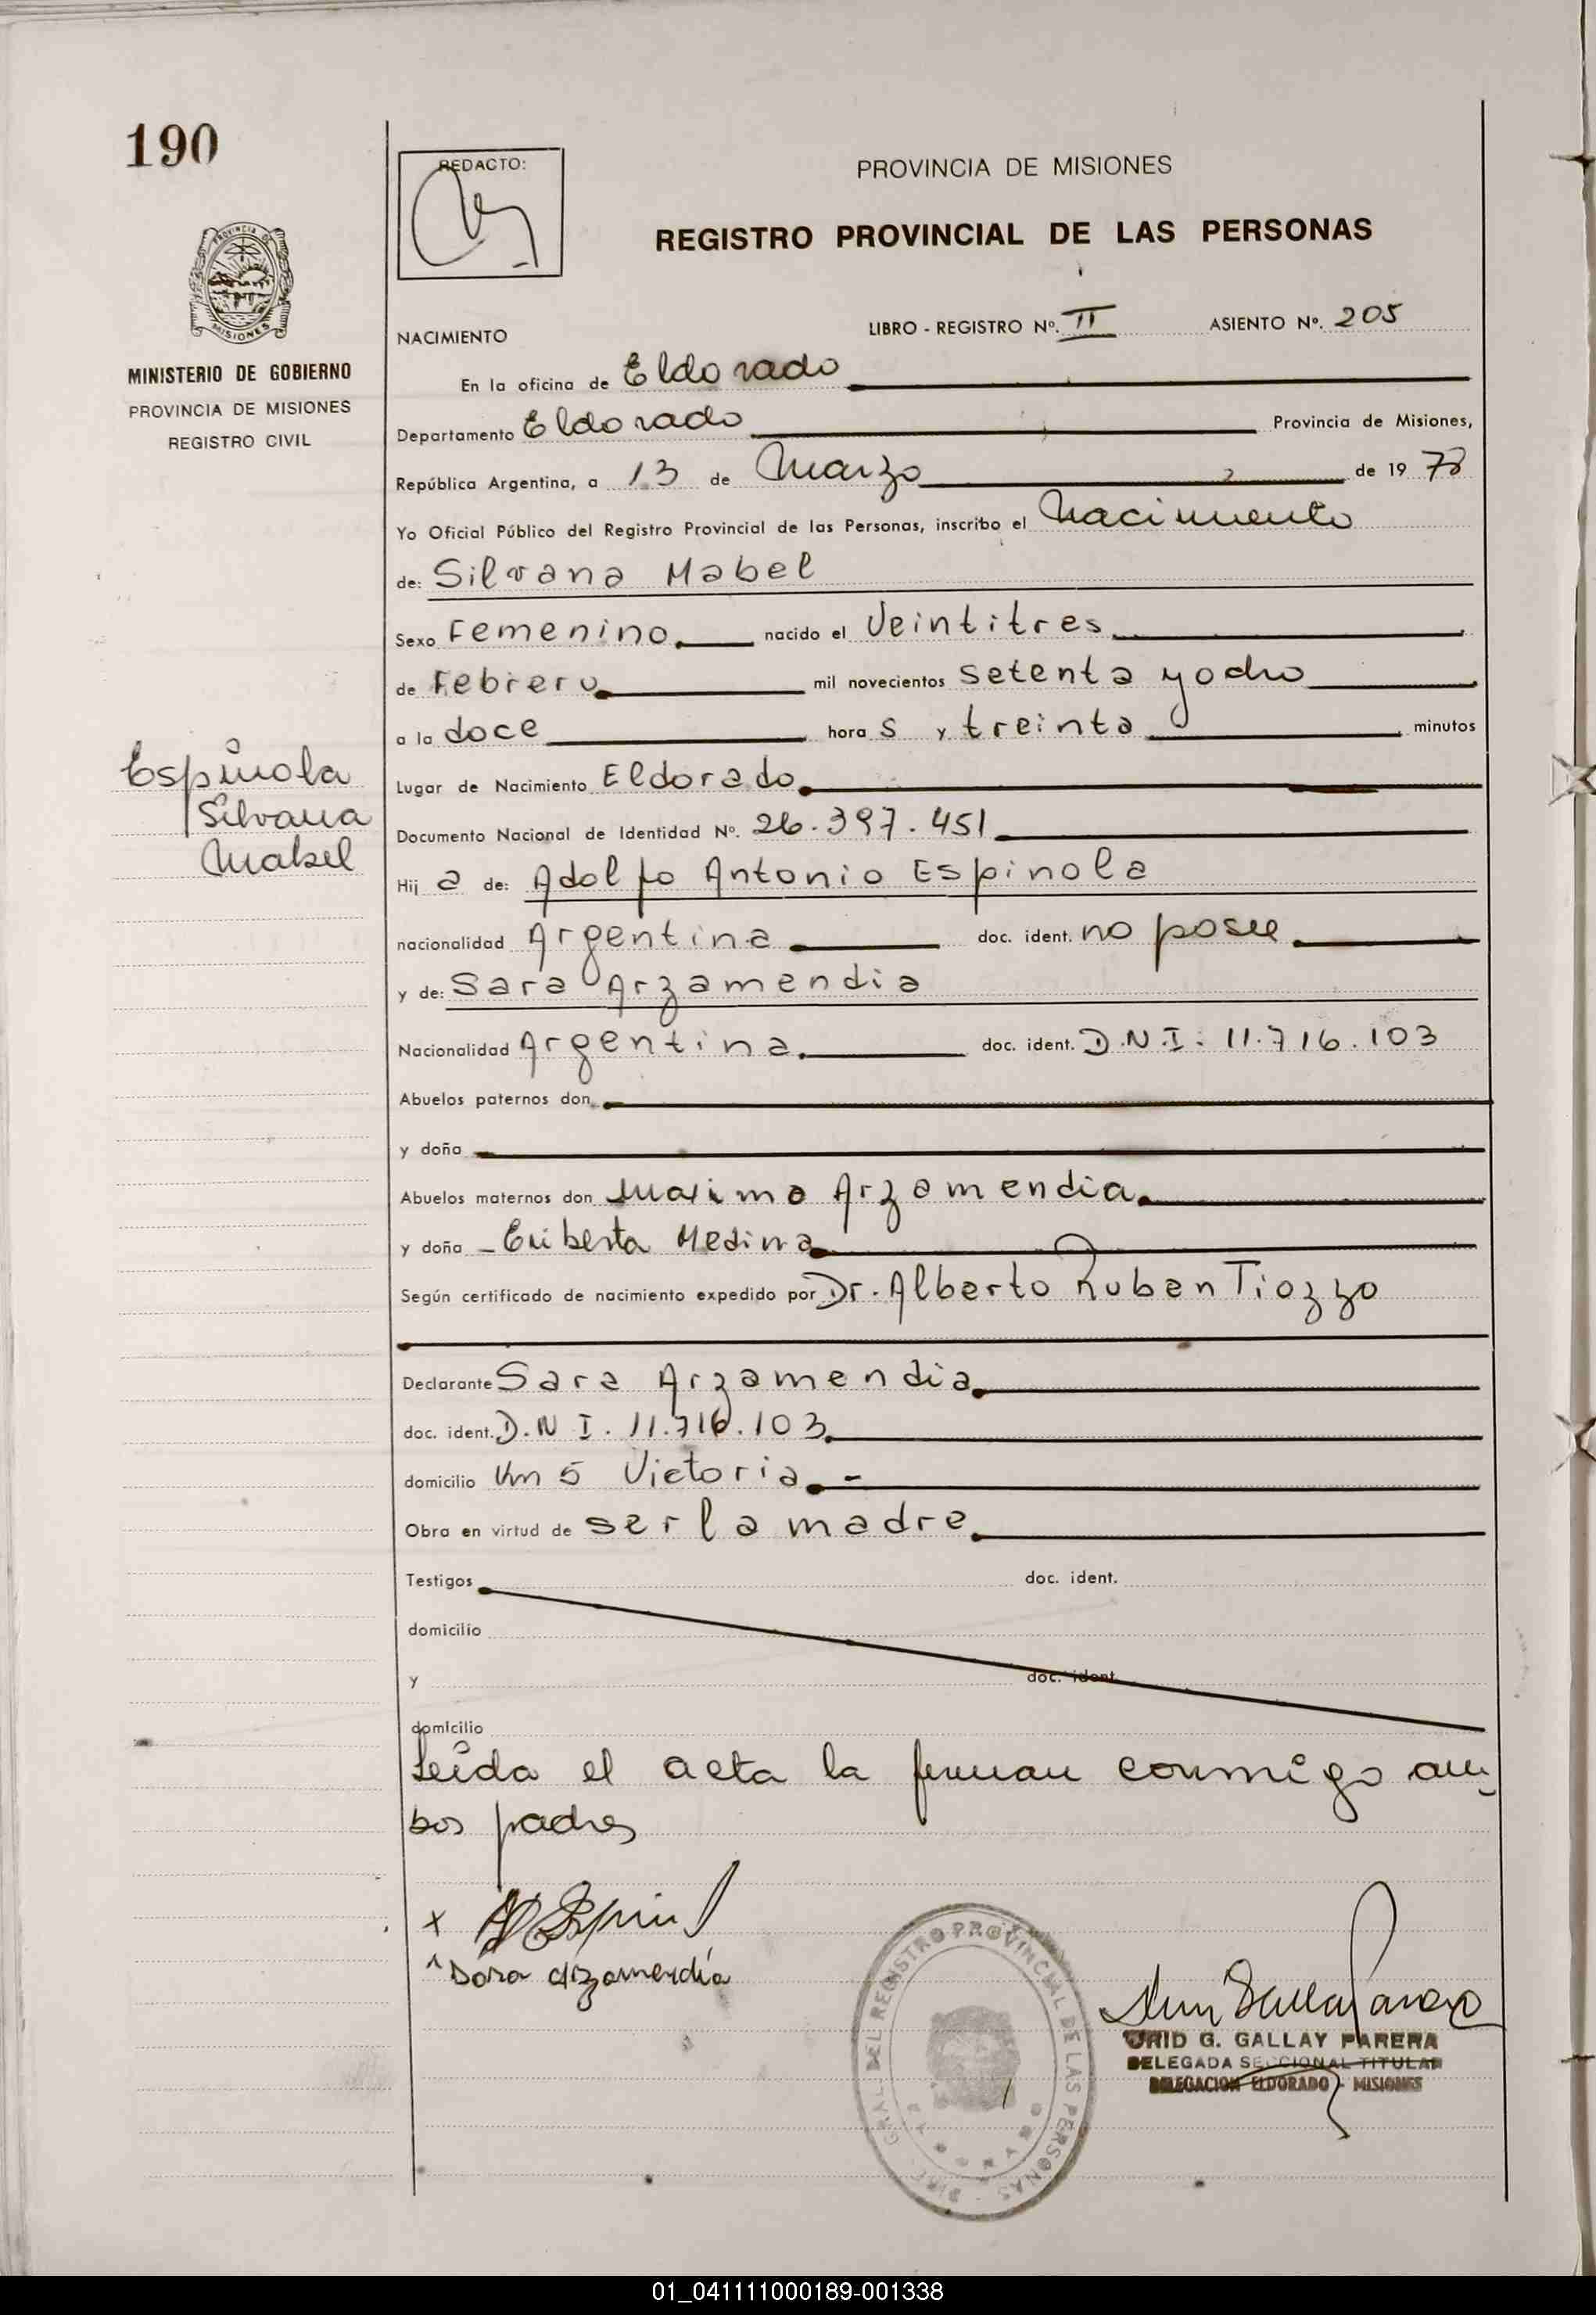 190
REDACTO:
PROVINCIA DE MISIONES
REGISTRO PROVINCIAL DE LAS PERSONAS
PROVINCIA DE
MISIONES
MINISTERIO DE GOBIERNO
PROVINCIA DE MISIONES
REGISTRO CIVIL
NACIMIENTO LIBRO - REGISTRO Nº. II ASIENTO Nº. 205
En la oficina de Eldorado
Departamento Eldorado Provincia de Misiones,
República Argentina, a 13 de Marzo de 19 78
Yo Oficial Público del Registro Provincial de las Personas, inscribo el Nacimiento
de: Silvana Mabel
Sexo Femenino. nacido el Veintitres
de Febrero mil novecientos setenta y ocho
a la doce hora s y treinta minutos
Espinola
Silvana
Mabel
Lugar de Nacimiento Eldorado
Documento Nacional de Identidad Nº. 26.397.451
Hij a de: Adolfo Antonio Espinola
nacionalidad Argentina doc. ident. no posee
y de: Sara Arzamendia
Nacionalidad Argentina doc. ident. D.N.I. 11.716.103
Abuelos paternos don
y doña
Abuelos maternos don Maximo Arzamendia
y doña Eriberta Medina
Según certificado de nacimiento expedido por Dr. Alberto Ruben Tiozzo
Declarante Sara Arzamendia
doc. ident. D.N I. 11.716.103
domicilio Km 5 Victoria -
Obra en virtud de ser la madre
Testigos doc. ident.
domicilio
y doc. ident.
domicilio
Leída el acta la firman conmigo am
bos padres
x
Sara Arzamendia
GRAL. DEL REGISTRO PROVINCIAL DE LAS PERSONAS - DIRE
URID G. GALLAY PARERA
DELEGADA SECCIONAL TITULAR
DELEGACION ELDORADO - MISIONES
01_041111000189-001338